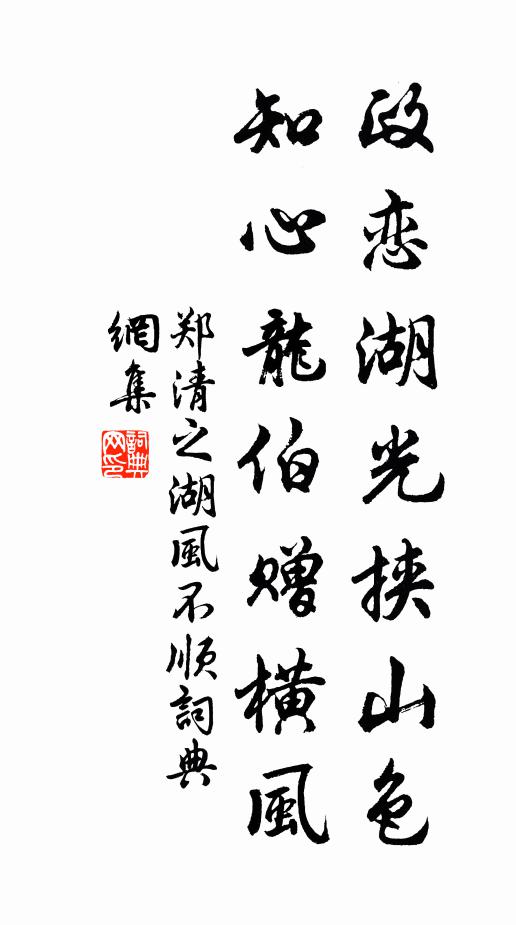 政恋湖光挟山色
知心龍伯赠横風
郑清之湖風不顺詞典
網集
詞典网印